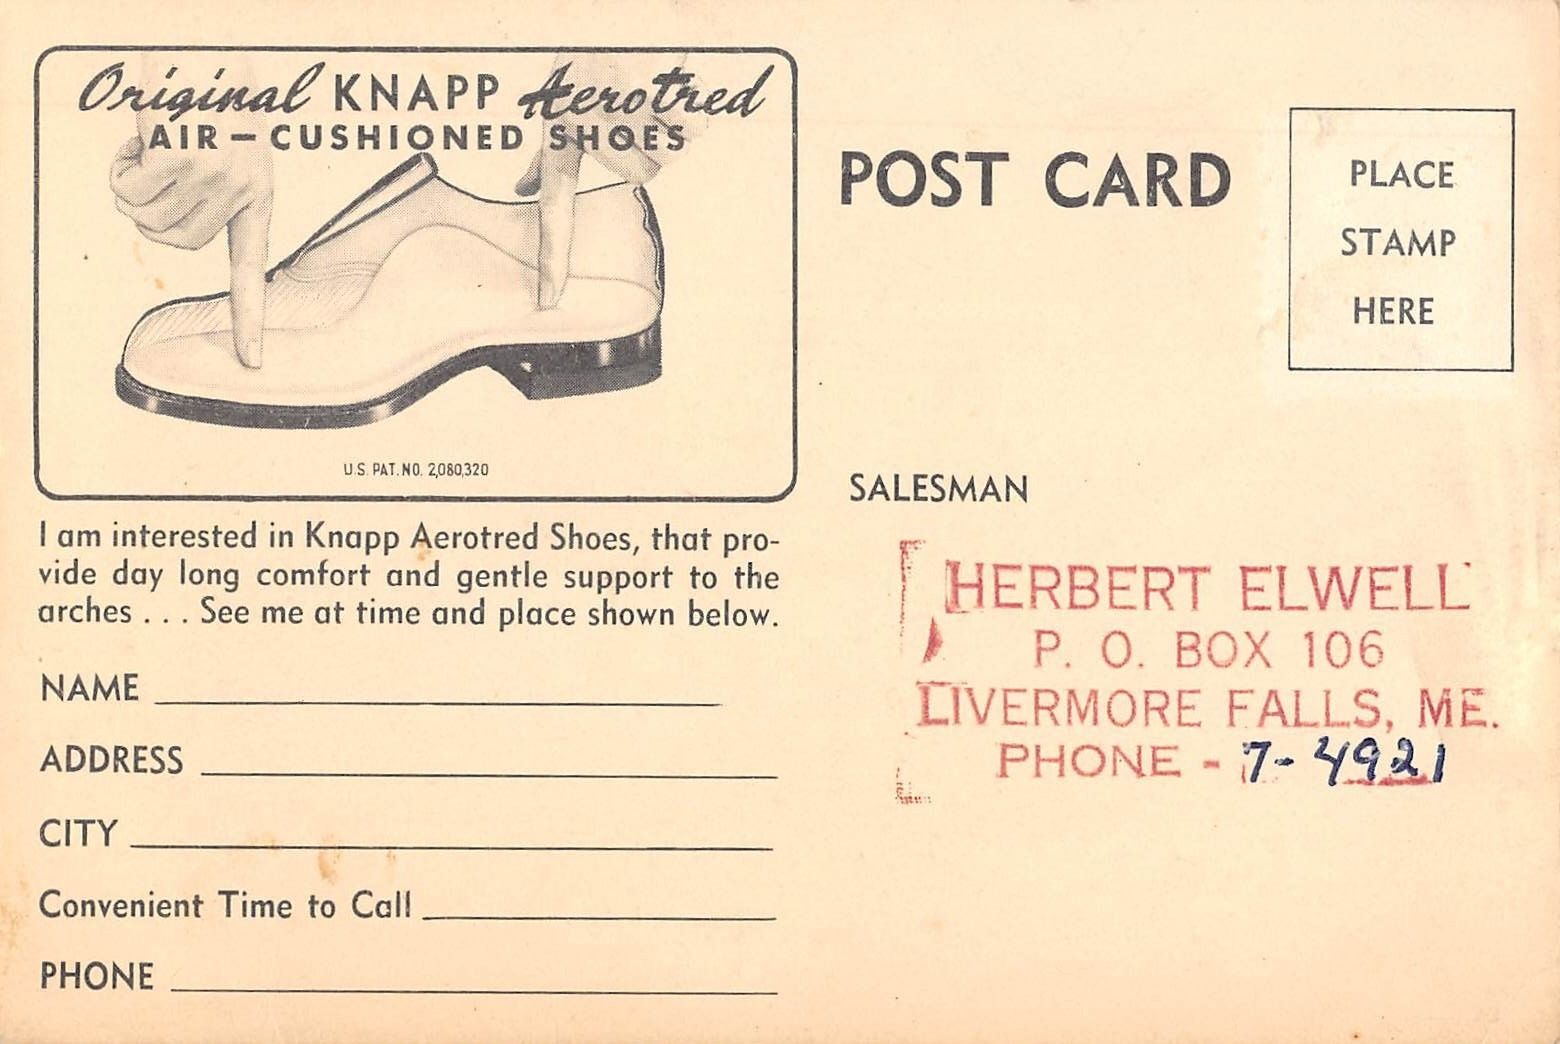 Original KNAPP Aerotred
AIR-CUSHIONED SHOES
U.S. PAT. NO. 2,080,320
I am interested in Knapp Aerotred Shoes, that pro-
vide day long comfort and gentle support to the
arches . . . See me at time and place shown below.
NAME
ADDRESS
CITY
Convenient Time to Call
PHONE
POST CARD
PLACE
STAMP
HERE
SALESMAN
HERBERT ELWELL
P. O. BOX 106
LIVERMORE FALLS, ME.
PHONE - 7-4921